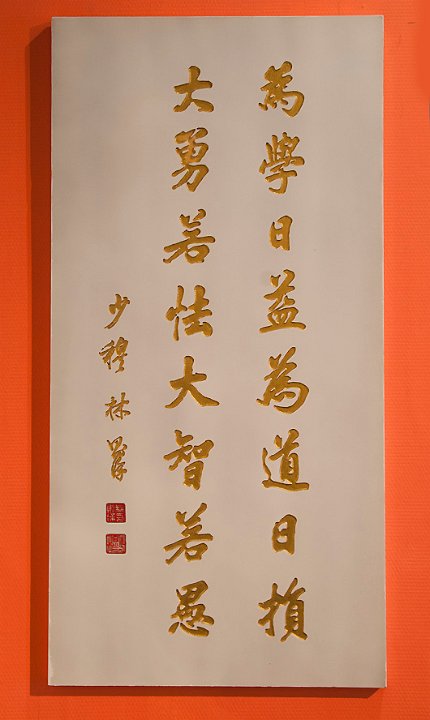 為學日益為道日損
大勇若怯大智若愚
少穆林則徐